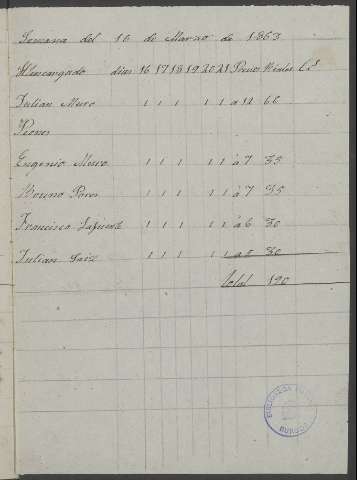 Semana del 16 de Marzo de 1863
El encargado dias 16 17 18 19 20 21 Precios Reales C.s
Julian Muro 1 1 1 1 1 a 12 60
Peones
Eugenio Muro 1 1 1 1 1 á 7 35
Bruno Pores 1 1 1 1 1 á 7 35
Francisco Lafuente 1 1 1 1 1 a 6 30
Julian Saiz 1 1 1 1 1 a 6 30
Total 190
BIBLIOTECA
BURGOS